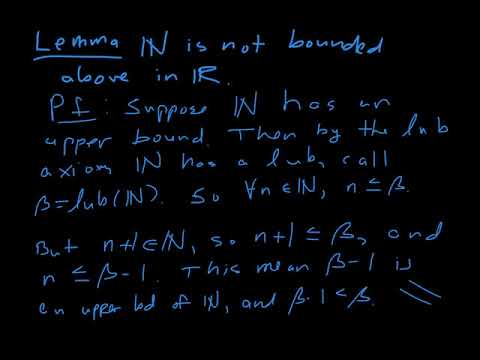 Lemma ℕ is not bounded
above in ℝ.
Pf: Suppose ℕ has an
upper bound. Then by the lub
axiom ℕ has a lub, call
β=lub(ℕ). So ∀n∈ℕ, n≤β.
But n+1∈ℕ, so n+1≤β, and
n≤β-1. This mean β-1 is
an upper bd of ℕ, and β-1<β.